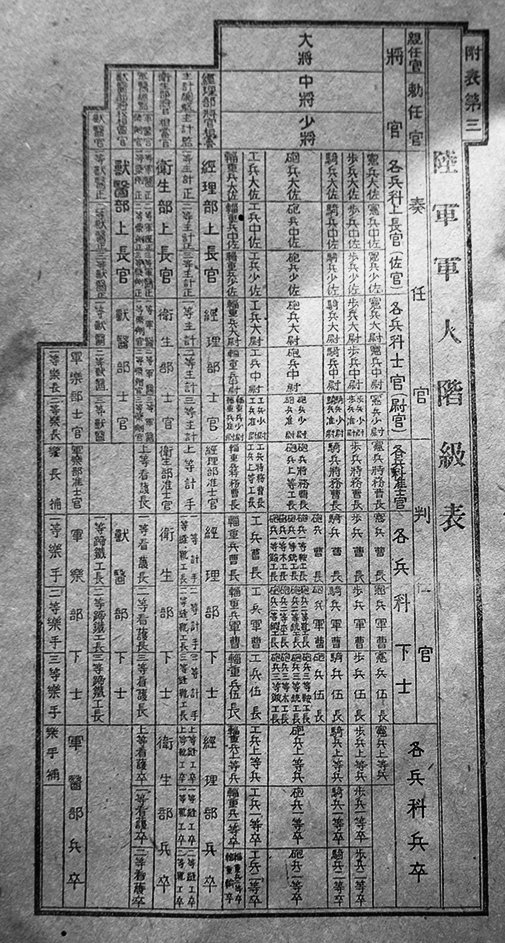 附表第三
陸軍軍人階級表
親任官 勅任官 奏任官 判任官
將官 各兵科上長官(佐官) 各兵科士官(尉官) 各兵科准士官 各兵科下士 各兵科兵卒
大將 中將 少將
憲兵大佐 憲兵中佐 憲兵少佐 憲兵大尉 憲兵中尉 憲兵少尉 憲兵特務曹長 憲兵曹長 憲兵軍曹 憲兵伍長 憲兵上等兵
歩兵大佐 歩兵中佐 歩兵少佐 歩兵大尉 歩兵中尉 歩兵少尉 歩兵准尉 歩兵特務曹長 歩兵曹長 歩兵軍曹 歩兵伍長 歩兵上等兵 歩兵一等卒 歩兵二等卒
騎兵大佐 騎兵中佐 騎兵少佐 騎兵大尉 騎兵中尉 騎兵少尉 騎兵准尉 騎兵特務曹長 騎兵曹長 騎兵軍曹 騎兵伍長 騎兵上等兵 騎兵一等卒 騎兵二等卒
砲兵大佐 砲兵中佐 砲兵少佐 砲兵大尉 砲兵中尉 砲兵少尉 砲兵准尉 砲兵特務曹長 砲兵上等工長 砲兵曹長 砲兵軍曹 砲兵伍長 砲兵上等兵 砲兵一等卒 砲兵二等卒
工兵大佐 工兵中佐 工兵少佐 工兵大尉 工兵中尉 工兵少尉 工兵准尉 工兵特務曹長 工兵上等工長 工兵曹長 工兵軍曹 工兵伍長 工兵上等兵 工兵一等卒 工兵二等卒
輜重兵大佐 輜重兵中佐 輜重兵少佐 輜重兵大尉 輜重兵中尉 輜重兵少尉 輜重兵准尉 輜重兵特務曹長 輜重兵曹長 輜重兵軍曹 輜重兵伍長 輜重兵上等兵 輜重兵一等卒 輜重兵二等卒 輜重輸卒
經理部將官相當官 經理部上長官 經理部士官 經理部准士官 經理部下士 經理部兵卒
主計總監 主計監 一等主計正 二等主計正 三等主計正 一等主計 二等主計 三等主計 上等計手 一等計手 二等計手 三等計手
衛生部將官相當官 衛生部上長官 衛生部士官 衛生部准士官 衛生部下士 衛生部兵卒
軍醫總監 軍醫監 一等軍醫正 二等軍醫正 三等軍醫正 一等軍醫 二等軍醫 三等軍醫 上等看護長 一等看護長 二等看護長 三等看護長 上等看護卒 一等看護卒 二等看護卒
獸醫部上長官 獸醫部士官 獸醫部下士
獸醫監 一等獸醫正 二等獸醫正 三等獸醫正 一等獸醫 二等獸醫 三等獸醫 一等蹄鐵工長 二等蹄鐵工長 三等蹄鐵工長
軍樂部士官 軍樂部准士官 軍樂部下士 軍醫部兵卒
一等樂長 二等樂長 樂長補 一等樂手 二等樂手 三等樂手 樂手補